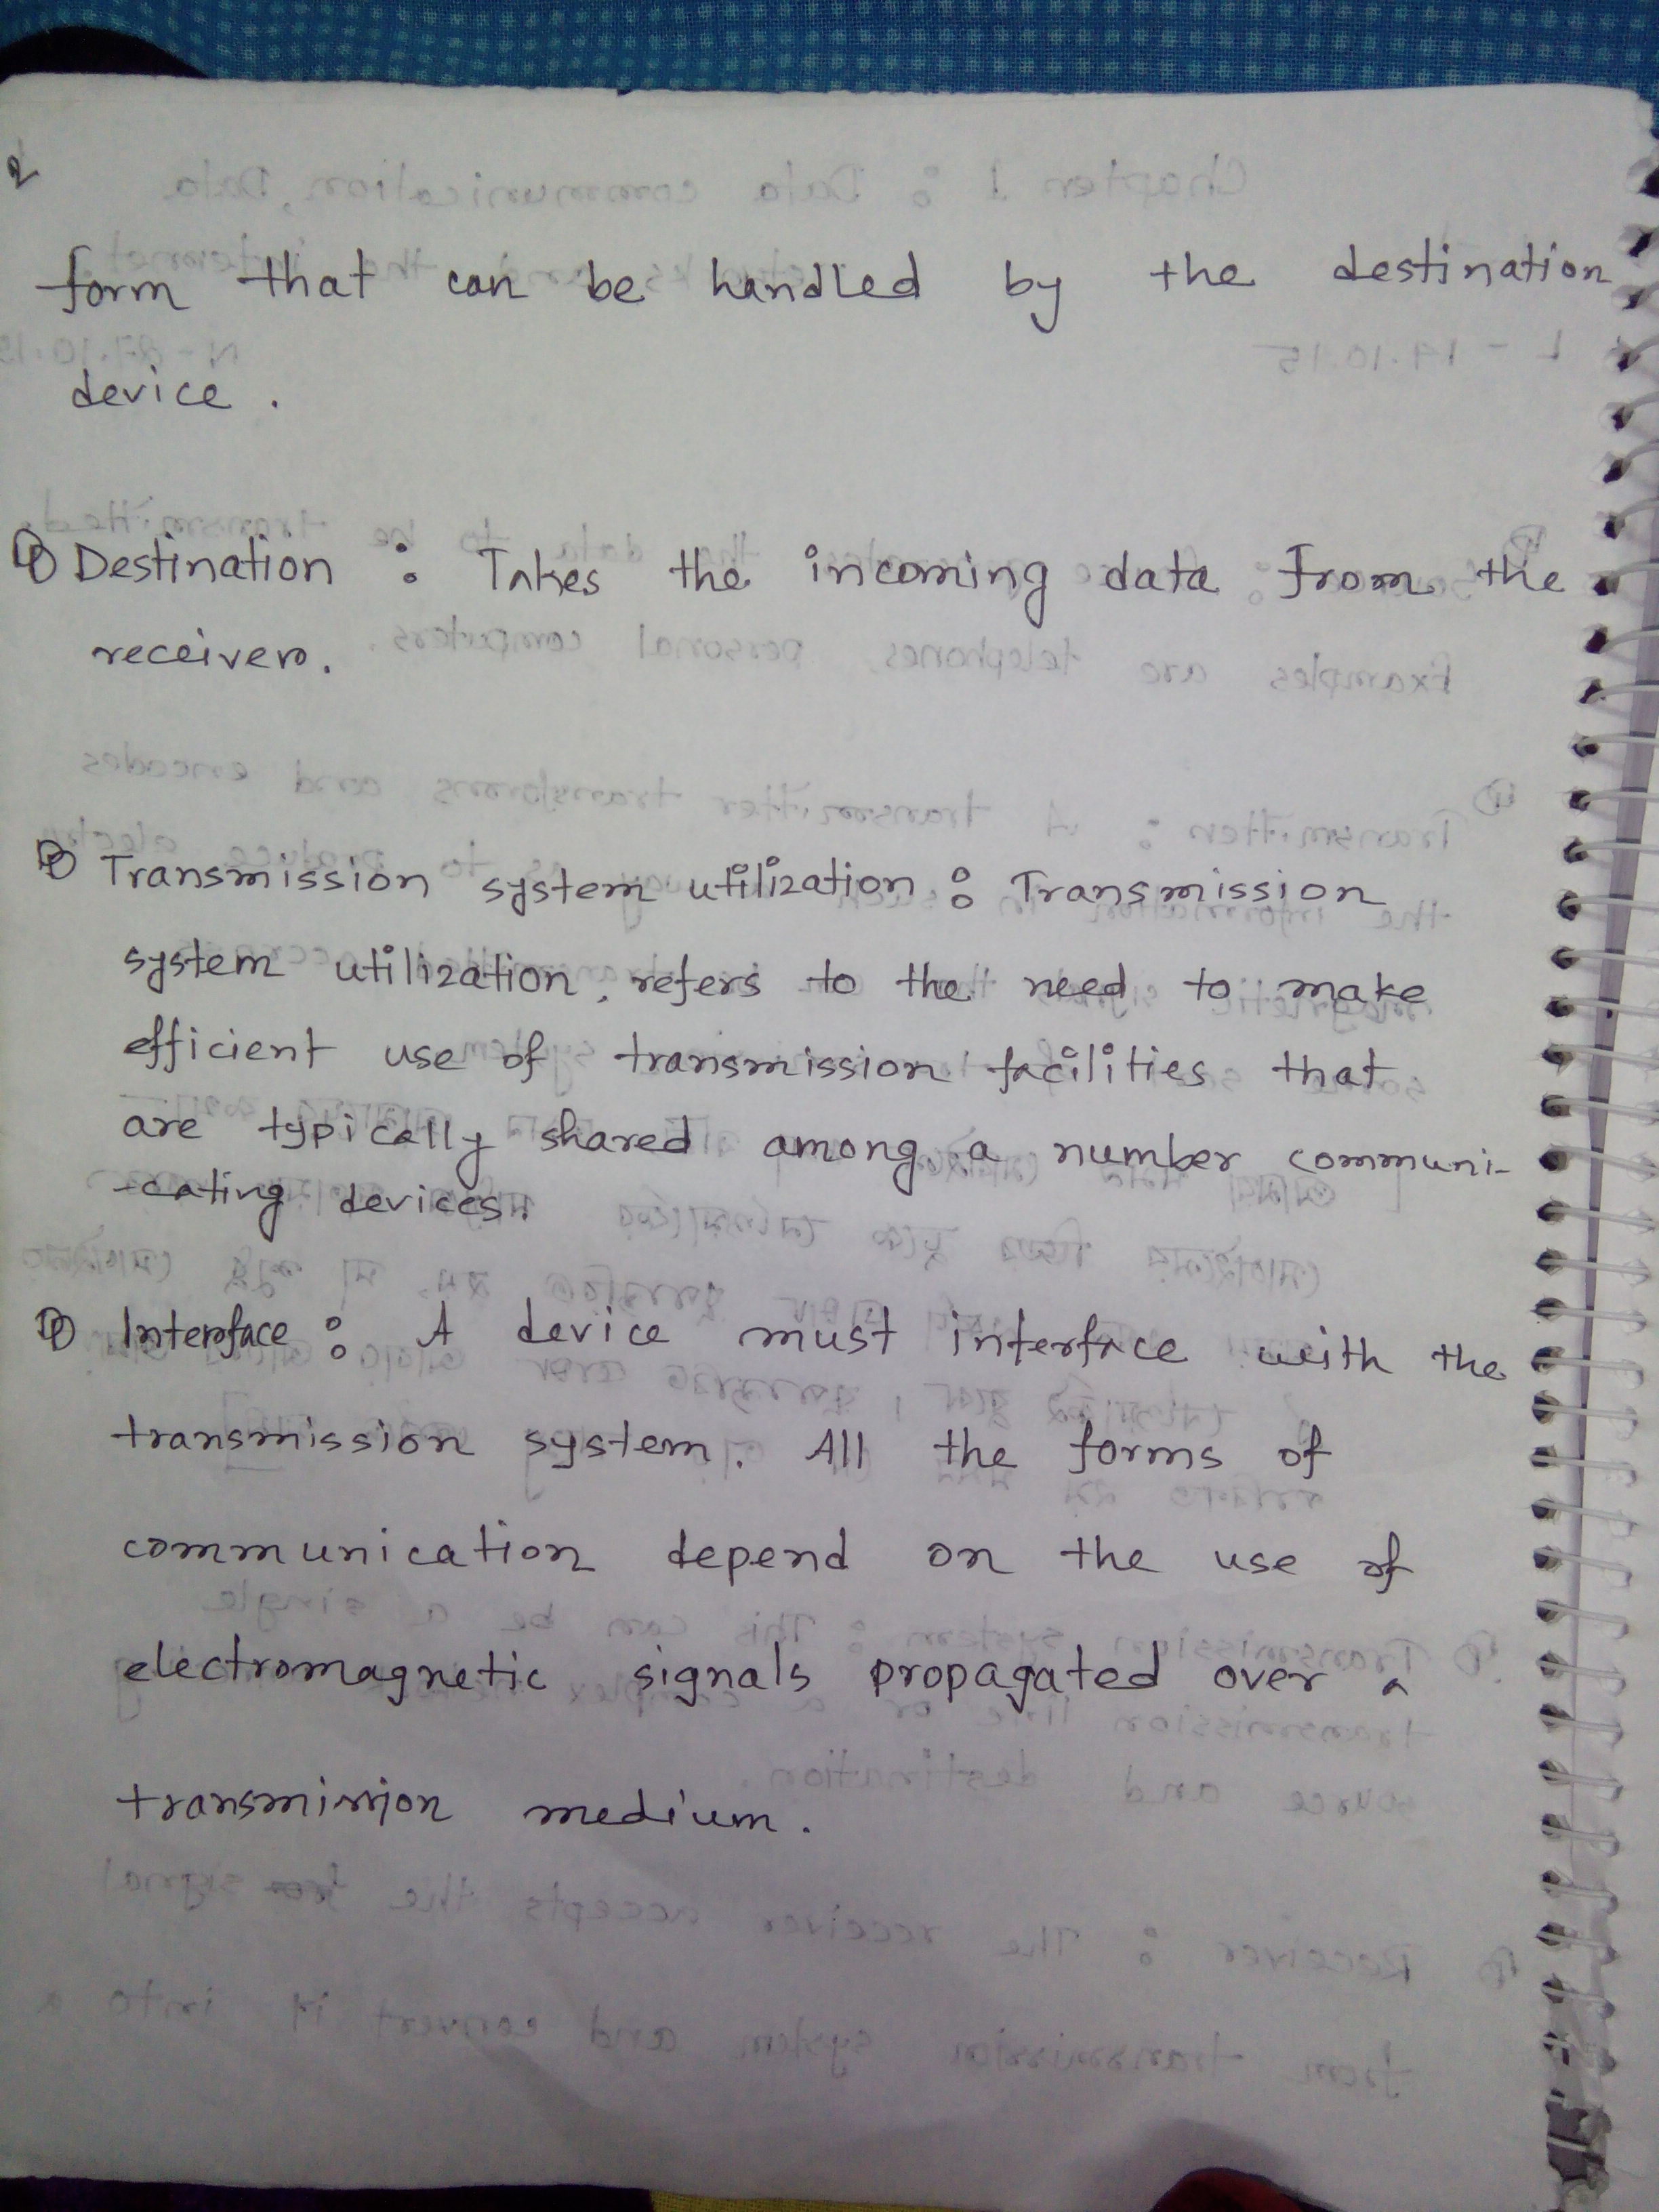 2
form that can be handled by the destination
device.
Destination : Takes the incoming data from the
receiver.
Transmission system utilization : Transmission
system utilization, refers to the need to make
efficient use of transmission facilities that
are typically shared among a number communi-
-cating devices.
Interface : A device must interface with the
transmission system. All the forms of
communication depend on the use of
electromagnetic signals propagated over a
transmission medium.